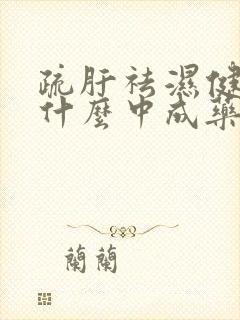 疏肝祛濕健
什麼中成藥
蘭蘭